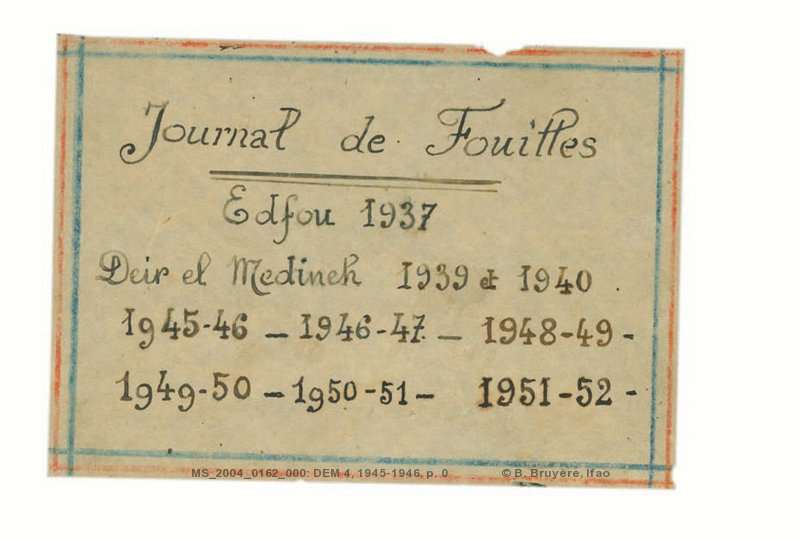 Journal de Fouilles
Edfou 1937
Deir el Medineh 1939 et 1940 .
1945-46 _ 1946-47 _ 1948-49 -
1949-50 - 1950-51 - 1951-52 -
MS_2004_0162_000: DEM 4, 1945-1946, p. 0 © B. Bruyère, Ifao